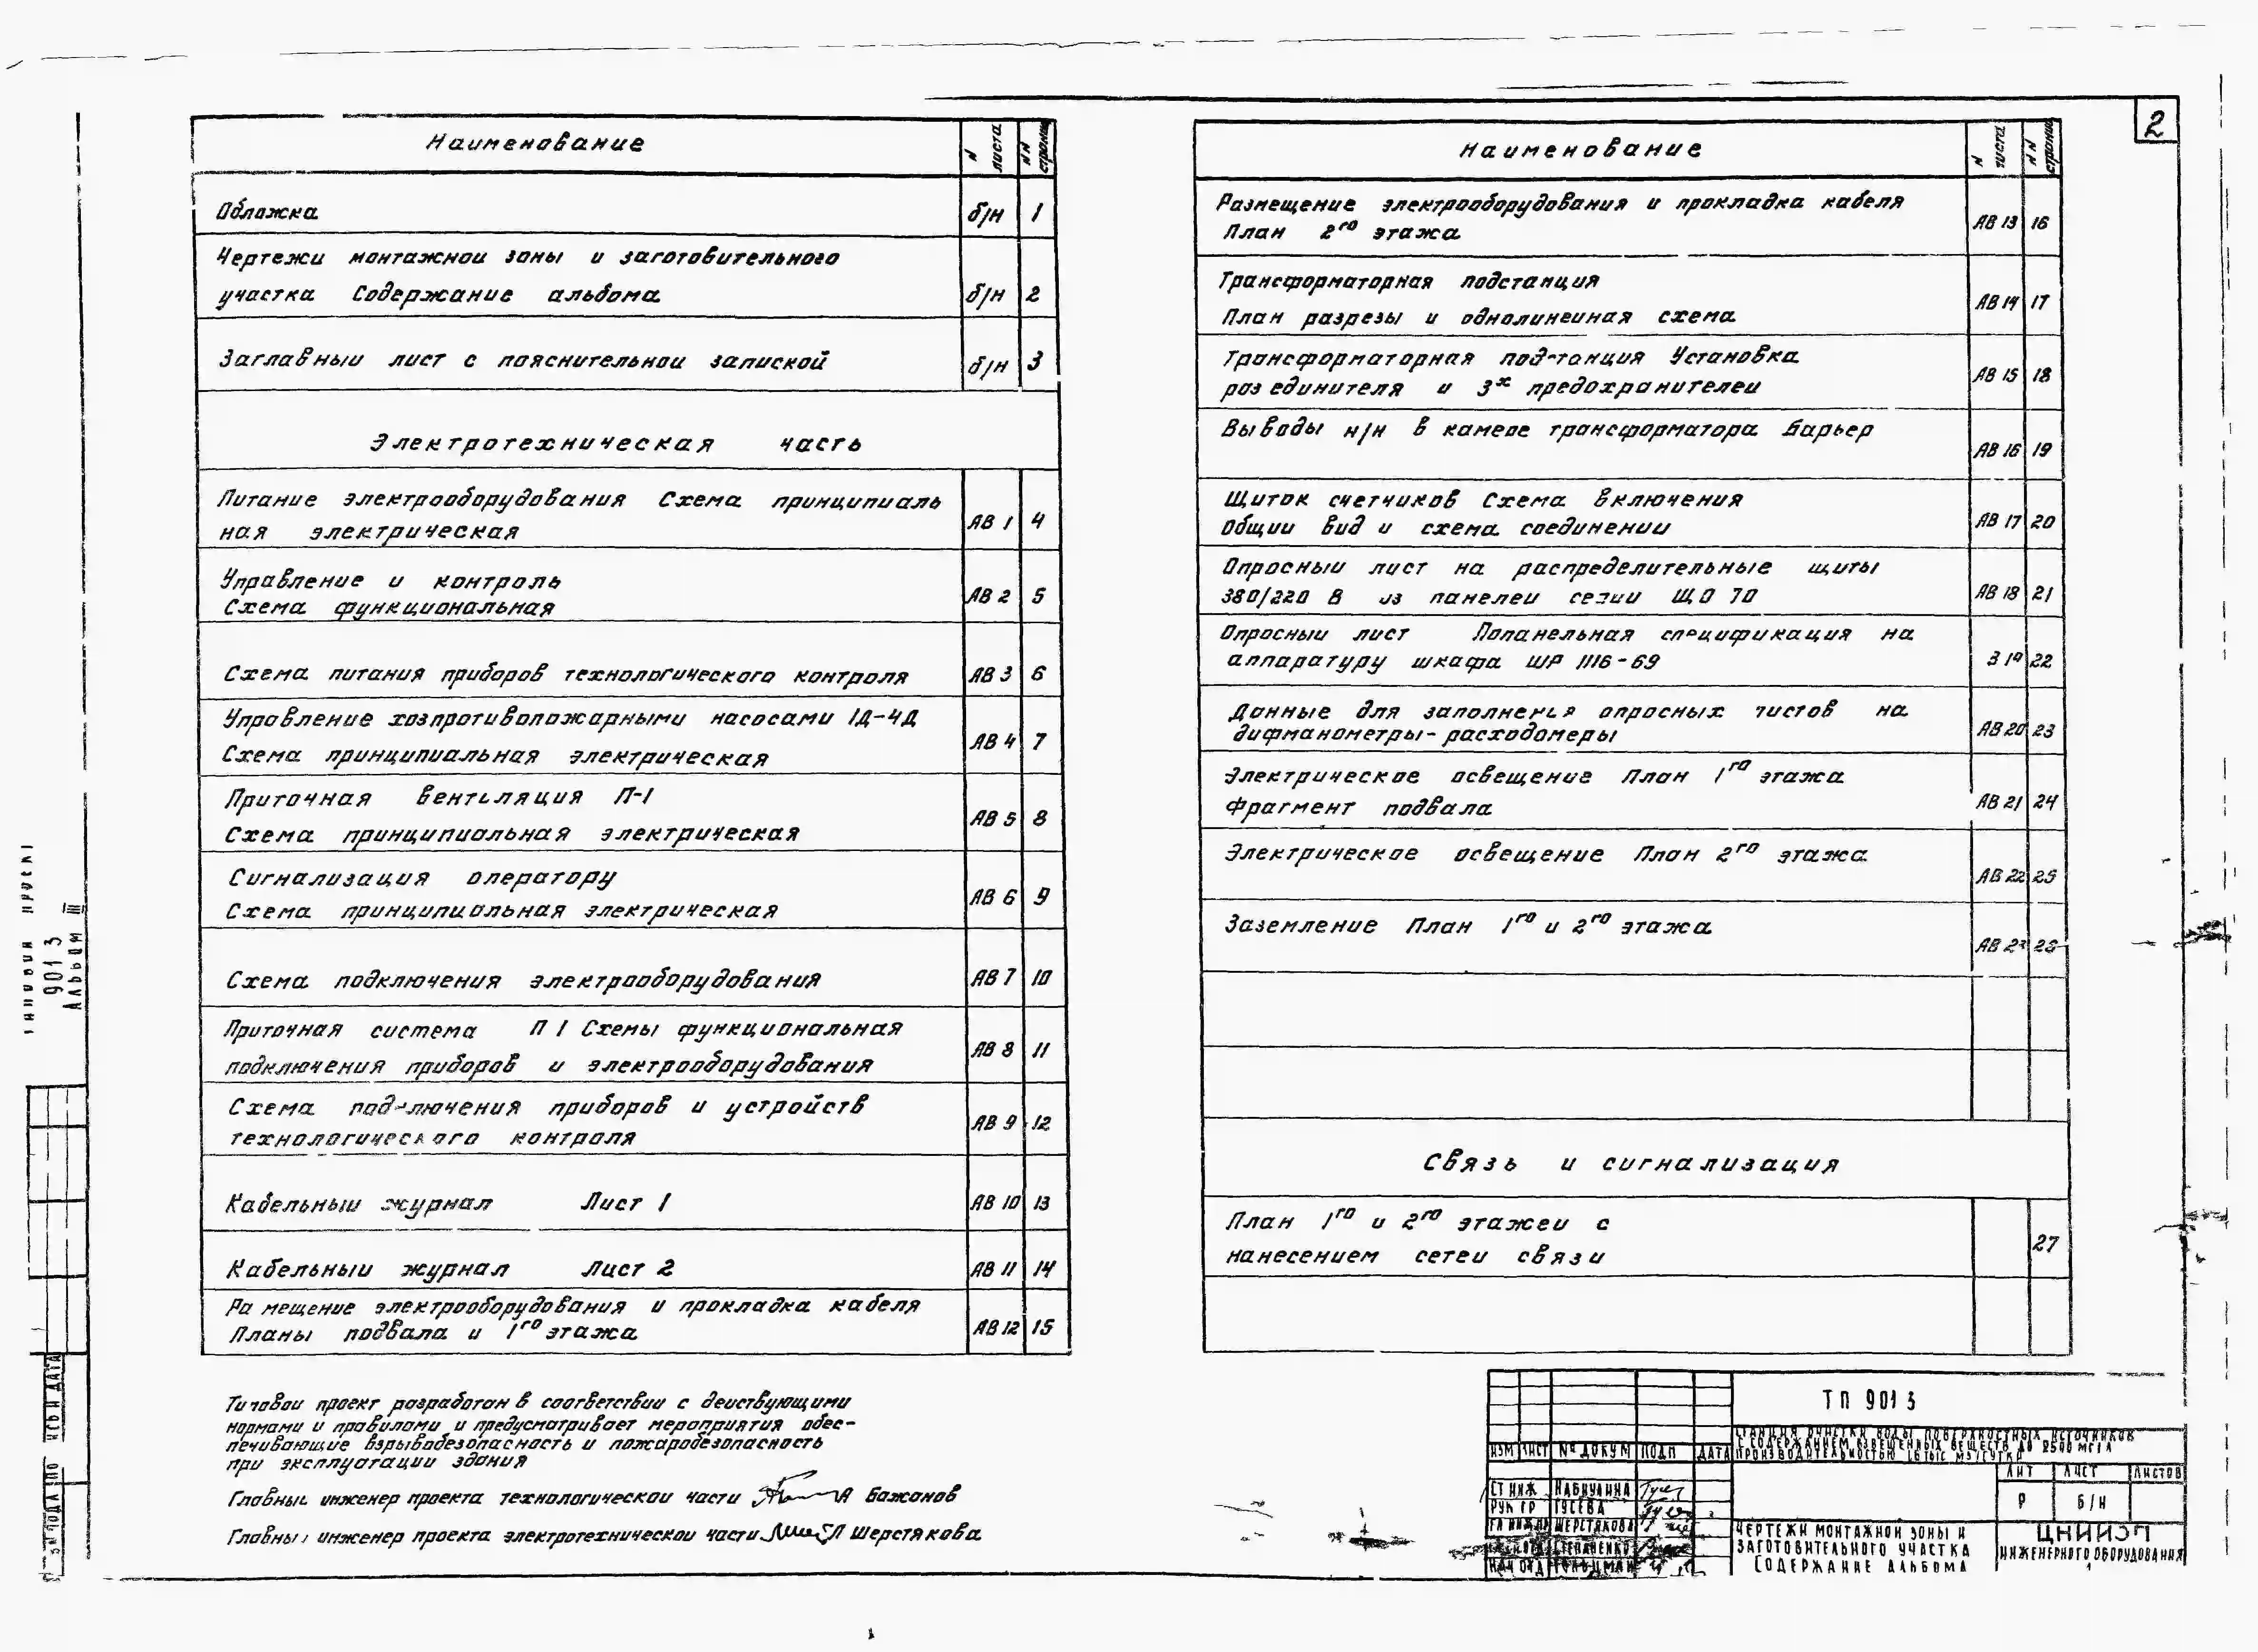 2
Наименование
N листа
NN страниц
Обложка б/н 1
Чертежи монтажной зоны и заготовительного
участка Содержание альбома б/н 2
Заглавный лист с пояснительной запиской б/н 3
Электротехническая часть
Питание электрооборудования Схема принципиаль
ная электрическая АВ 1 4
Управление и контроль
Схема функциональная АВ 2 5
Схема питания приборов технологического контроля АВ 3 6
Управление хозпротивопожарными насосами 1Д-4Д
Схема принципиальная электрическая АВ 4 7
Приточная вентиляция П-1
Схема принципиальная электрическая АВ 5 8
Сигнализация оператору
Схема принципиальная электрическая АВ 6 9
Схема подключения электрооборудования АВ 7 10
Приточная система П 1 Схемы функциональная
подключения приборов и электрооборудования АВ 8 11
Схема подключения приборов и устройств
технологического контроля АВ 9 12
Кабельный журнал Лист 1 АВ 10 13
Кабельный журнал Лист 2 АВ 11 14
Размещение электрооборудования и прокладка кабеля
Планы подвала и 1го этажа АВ 12 15
Типовой проект разработан в соответствии с действующими
нормами и правилами и предусматривает мероприятия обес-
печивающие взрывобезопасность и пожаробезопасность
при эксплуатации здания
Главный инженер проекта технологической части А Бажанов
Главный инженер проекта электротехнической части Л Шерстякова
Наименование
N листа
NN страниц
Размещение электрооборудования и прокладка кабеля
План 2го этажа АВ 13 16
Трансформаторная подстанция
План разрезы и однолинейная схема АВ 14 17
Трансформаторная подстанция Установка
разъединителя и 3х предохранителей АВ 15 18
Выводы н/н в камере трансформатора Барьер АВ 16 19
Щиток счетчиков Схема включения
Общий вид и схема соединений АВ 17 20
Опросный лист на распределительные щиты
380/220 В из панелей серии ЩО 70 АВ 18 21
Опросный лист Попанельная спецификация на
аппаратуру шкафа ШР 1116-69 19 22
Данные для заполнения опросных листов на
дифманометры-расходомеры АВ 20 23
Электрическое освещение План 1го этажа
Фрагмент подвала АВ 21 24
Электрическое освещение План 2го этажа АВ 22 25
Заземление План 1го и 2го этажа АВ 23 26
Связь и сигнализация
План 1го и 2го этажей с
нанесением сетей связи 27
ТП 901 3
СТАНЦИЯ ОЧИСТКИ ВОДЫ ПОВЕРХНОСТНЫХ ИСТОЧНИКОВ
С СОДЕРЖАНИЕМ ВЗВЕШЕННЫХ ВЕЩЕСТВ ДО 2500 МГ/Л
ПРОИЗВОДИТЕЛЬНОСТЬЮ ТЫС М3/СУТКИ
ИЗМ ЛИСТ № ДОКУМ ПОДП ДАТА
ЛИТ ЛИСТ ЛИСТОВ
Р б/н
СТ ИНЖ НАБИУЛИНА
РУК ГР ГУСЕВА
ГЛ ИНЖ ПР ШЕРСТЯКОВА
СТЕПАНЕНКО
НАЧ ОТД
ЧЕРТЕЖИ МОНТАЖНОЙ ЗОНЫ И
ЗАГОТОВИТЕЛЬНОГО УЧАСТКА
СОДЕРЖАНИЕ АЛЬБОМА
ЦНИИЭП
ИНЖЕНЕРНОГО ОБОРУДОВАНИЯ
901 3
АЛЬБОМ III